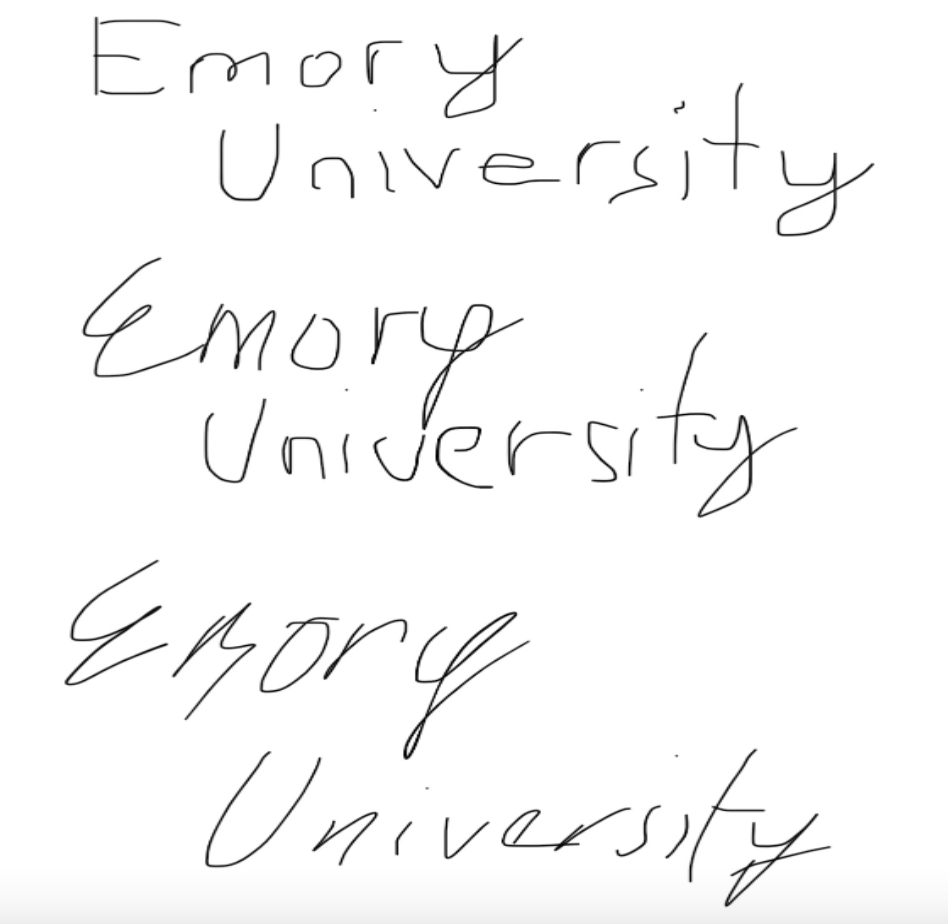 Emory
University
Emory
University
Emory
University